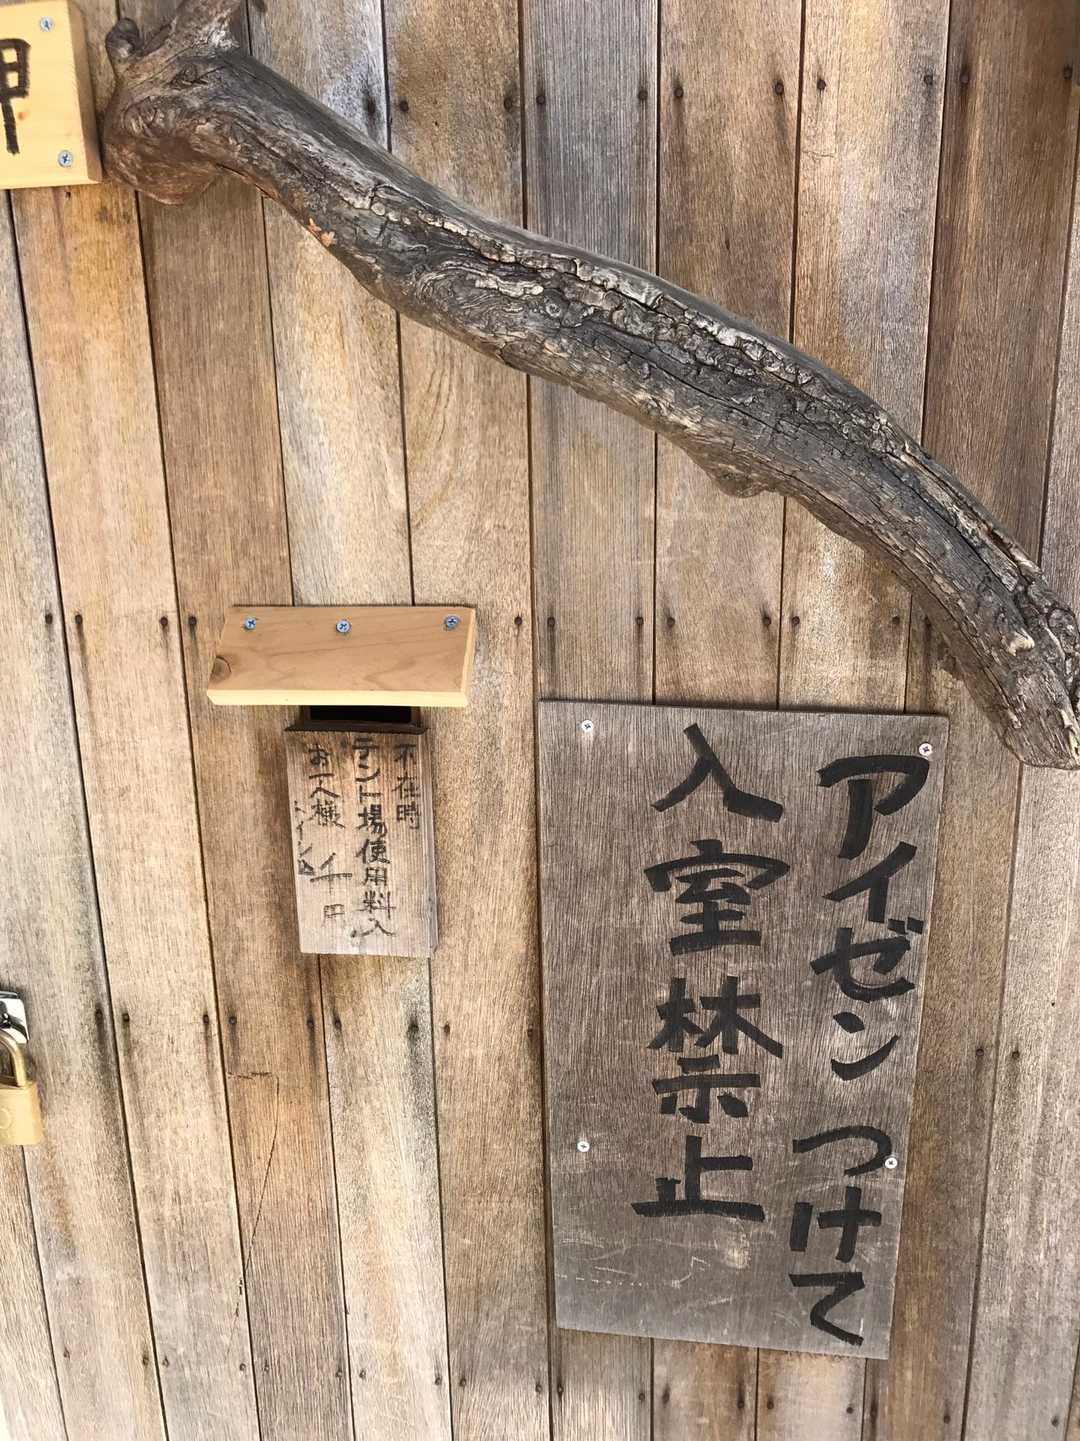 押
アイゼンつけて
入室禁止
不在時
テント場使用料入
お一人様 千円